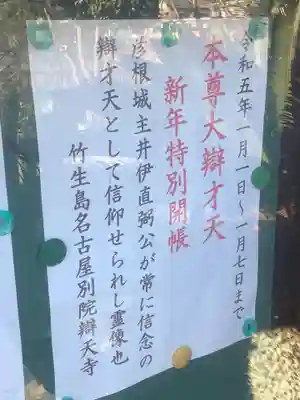 令和五年一月一日~一月七日まで
本尊大辯才天
新年特別開帳
彦根城主井伊直弼公が常に信念の
辯才天として信仰せられし霊像也
竹生島名古屋別院辯天寺